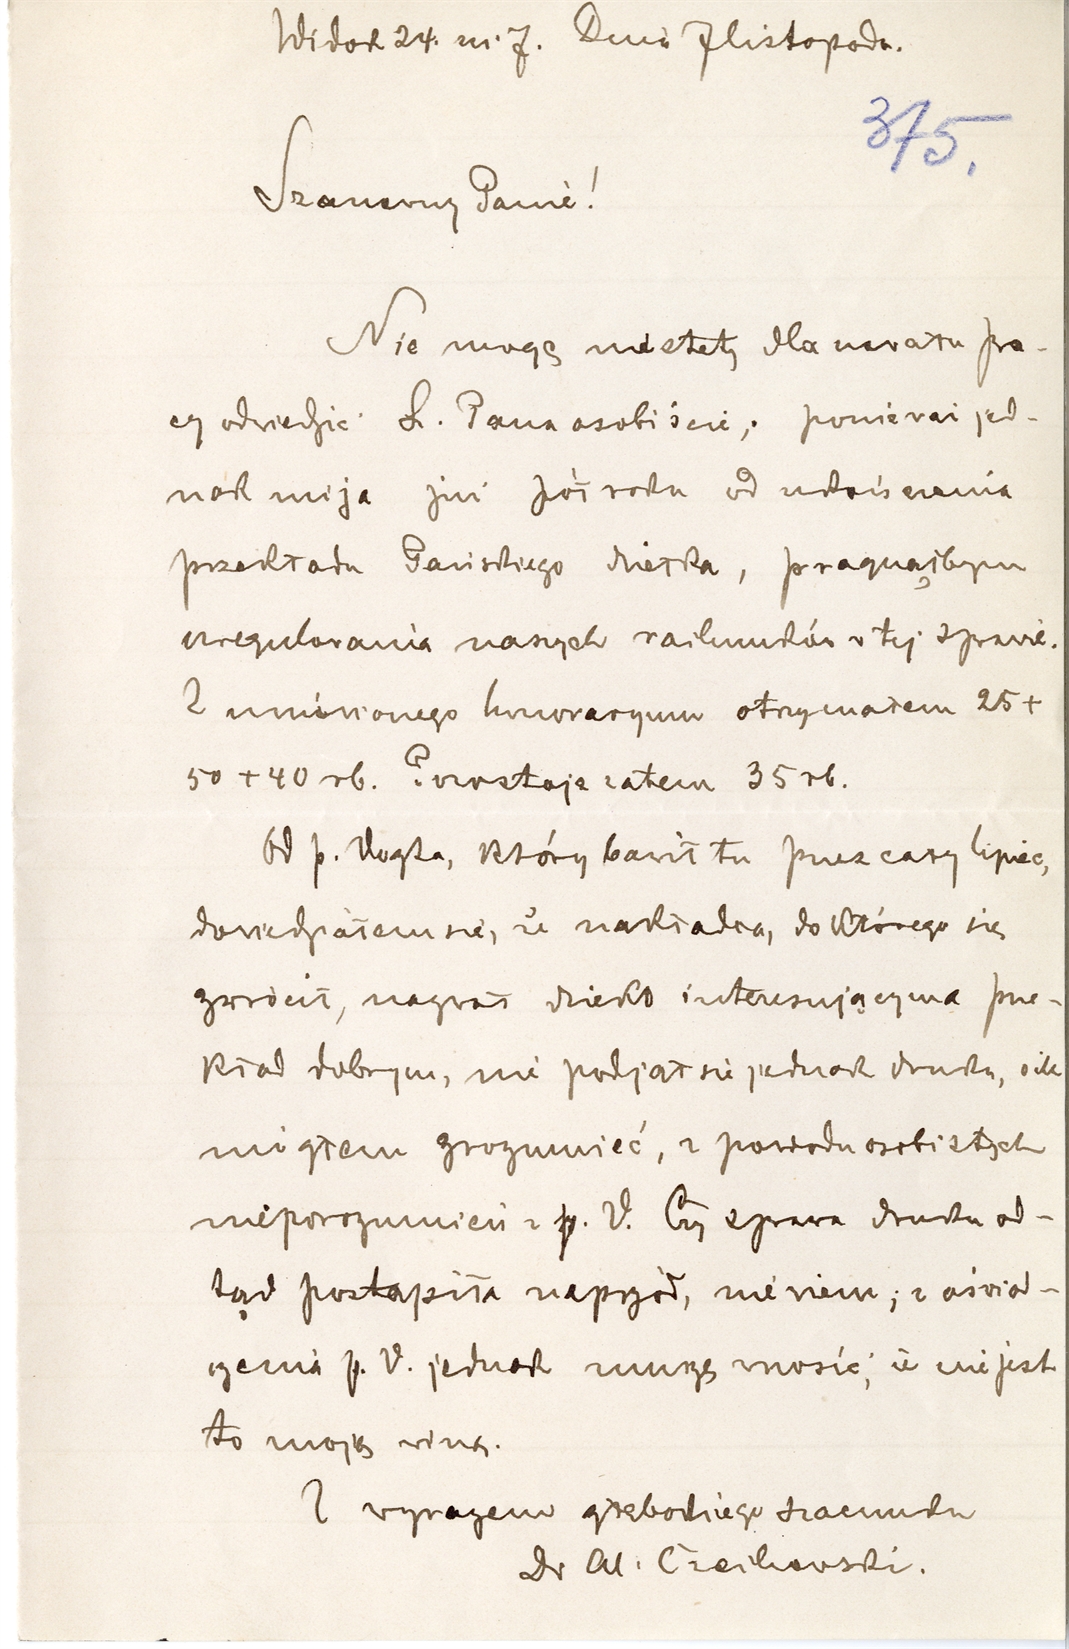 Widok 24. m. 7. Dnia 7 listopada.
375.
Szanowny Panie!
Nie mogę niestety dla nawału pra-
cy odwiedzić Sz. Pana osobiście, ponieważ jed-
nak mija już pół roku od ukończenia
przekładu Pańskiego dziełka, pragnąłbym
uregulowania naszych rachunków w tej sprawie.
Z umówionego honoraryum otrzymałem 25 +
50 + 40 rb. Pozostaje zatem 35 rb.
Od p. Vogta, który bawił tu przez cały lipiec,
dowiedziałem się, że nakładca, do którego się
zwrócił, nazwał dzieło interesującym a prze-
kład dobrym, nie podjął się jednak druku, o ile
mogłem zrozumieć, z powodu osobistych
nieporozumień z p. V. Czy sprawa druku od-
tąd postąpiła naprzód, nie wiem; z oświad-
czenia p. V. jednak muszę wnosić, że nie jest
to moją winą.
Z wyrazem głębokiego szacunku
Dr Al. Czechowski.